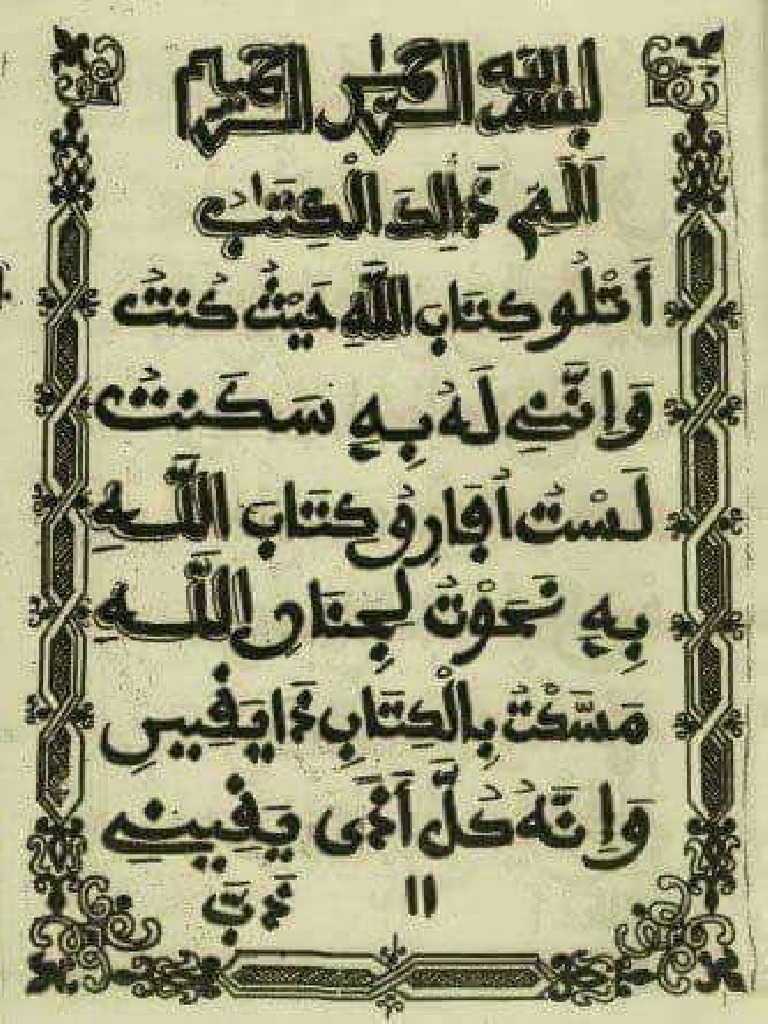 بسم الله الرحمن الرحيم
الٓمٓ ذَٰلِكَ الْكِتَٰبُ
أَتْلُو كِتَابَ اللَّهِ حَيْثُ كُنتُ
وَإِنَّنِي لَهُ بِهِ سَكَنتُ
لَسْتُ أُفَارِقُ كِتَابَ اللَّهِ
بِهِ نَحَوْتُ لِجِنَانِ اللَّهِ
مَسَّكْتُ بِالْكِتَابِ ذَا يَقِينِ
وَإِنَّهُ كُلَّ أَذًى يَقِينِي
11 ذَبَّ